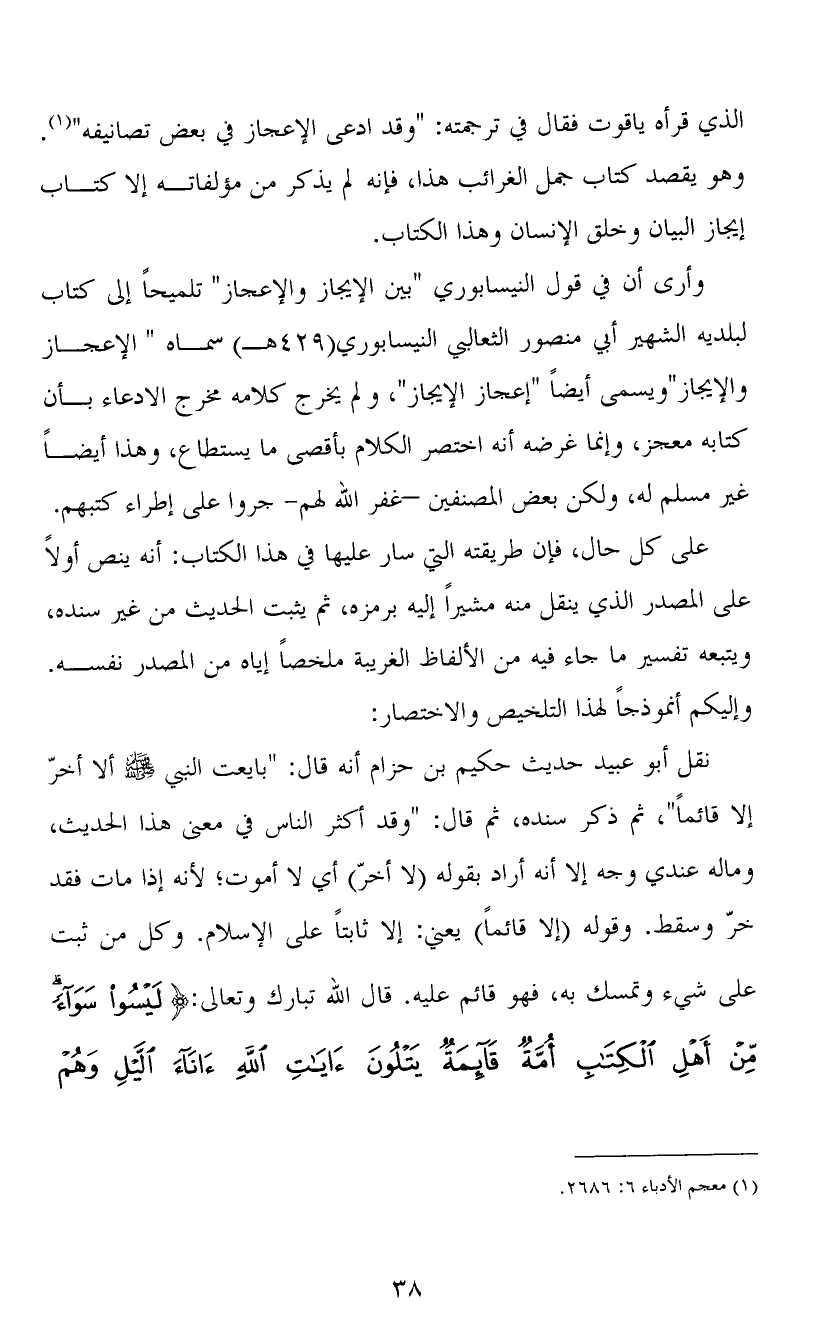 الذي قرأه ياقوت فقال في ترجمته: "وقد ادعى الإعجاز في بعض تصانيفه"(١).
وهو يقصد كتاب جمل الغرائب هذا، فإنه لم يذكر من مؤلفاتـــه إلا كتـــاب
إيجاز البيان وخلق الإنسان وهذا الكتاب.
وأرى أن في قول النيسابوري "بين الإيجاز والإعجاز" تلميحاً إلى كتاب
لبلديه الشهير أبي منصور الثعالبي النيسابوري(٤٢٩هـــ) سمـــاه " الإعجـــاز
والإيجاز"ويسمى أيضاً "إعجاز الإيجاز"، ولم يخرج كلامه مخرج الادعاء بـــأن
كتابه معجز، وإنما غرضه أنه اختصر الكلام بأقصى ما يستطاع، وهذا أيضـــاً
غير مسلم له، ولكن بعض المصنفين –غفر الله لهم- جروا على إطراء كتبهم.
على كل حال، فإن طريقته التي سار عليها في هذا الكتاب: أنه ينص أولاً
على المصدر الذي ينقل منه مشيراً إليه برمزه، ثم يثبت الحديث من غير سنده،
ويتبعه تفسير ما جاء فيه من الألفاظ الغريبة ملخصاً إياه من المصدر نفســـه.
وإليكم أنموذجاً لهذا التلخيص والاختصار:
نقل أبو عبيد حديث حكيم بن حزام أنه قال: "بايعت النبي ﷺ ألا أخرّ
إلا قائماً"، ثم ذكر سنده، ثم قال: "وقد أكثر الناس في معنى هذا الحديث،
وماله عندي وجه إلا أنه أراد بقوله (لا أخرّ) أي لا أموت؛ لأنه إذا مات فقد
خرّ وسقط. وقوله (إلا قائماً) يعني: إلا ثابتاً على الإسلام. وكل من ثبت
على شيء وتمسك به، فهو قائم عليه. قال الله تبارك وتعالى:﴿ لَيْسُوا۟ سَوَآءً ۗ
مِّنْ أَهْلِ ٱلْكِتَٰبِ أُمَّةٌ قَآئِمَةٌ يَتْلُونَ ءَايَٰتِ ٱللَّهِ ءَانَآءَ ٱلَّيْلِ وَهُمْ
(١) معجم الأدباء ٦: ٢٦٨٦.
٣٨